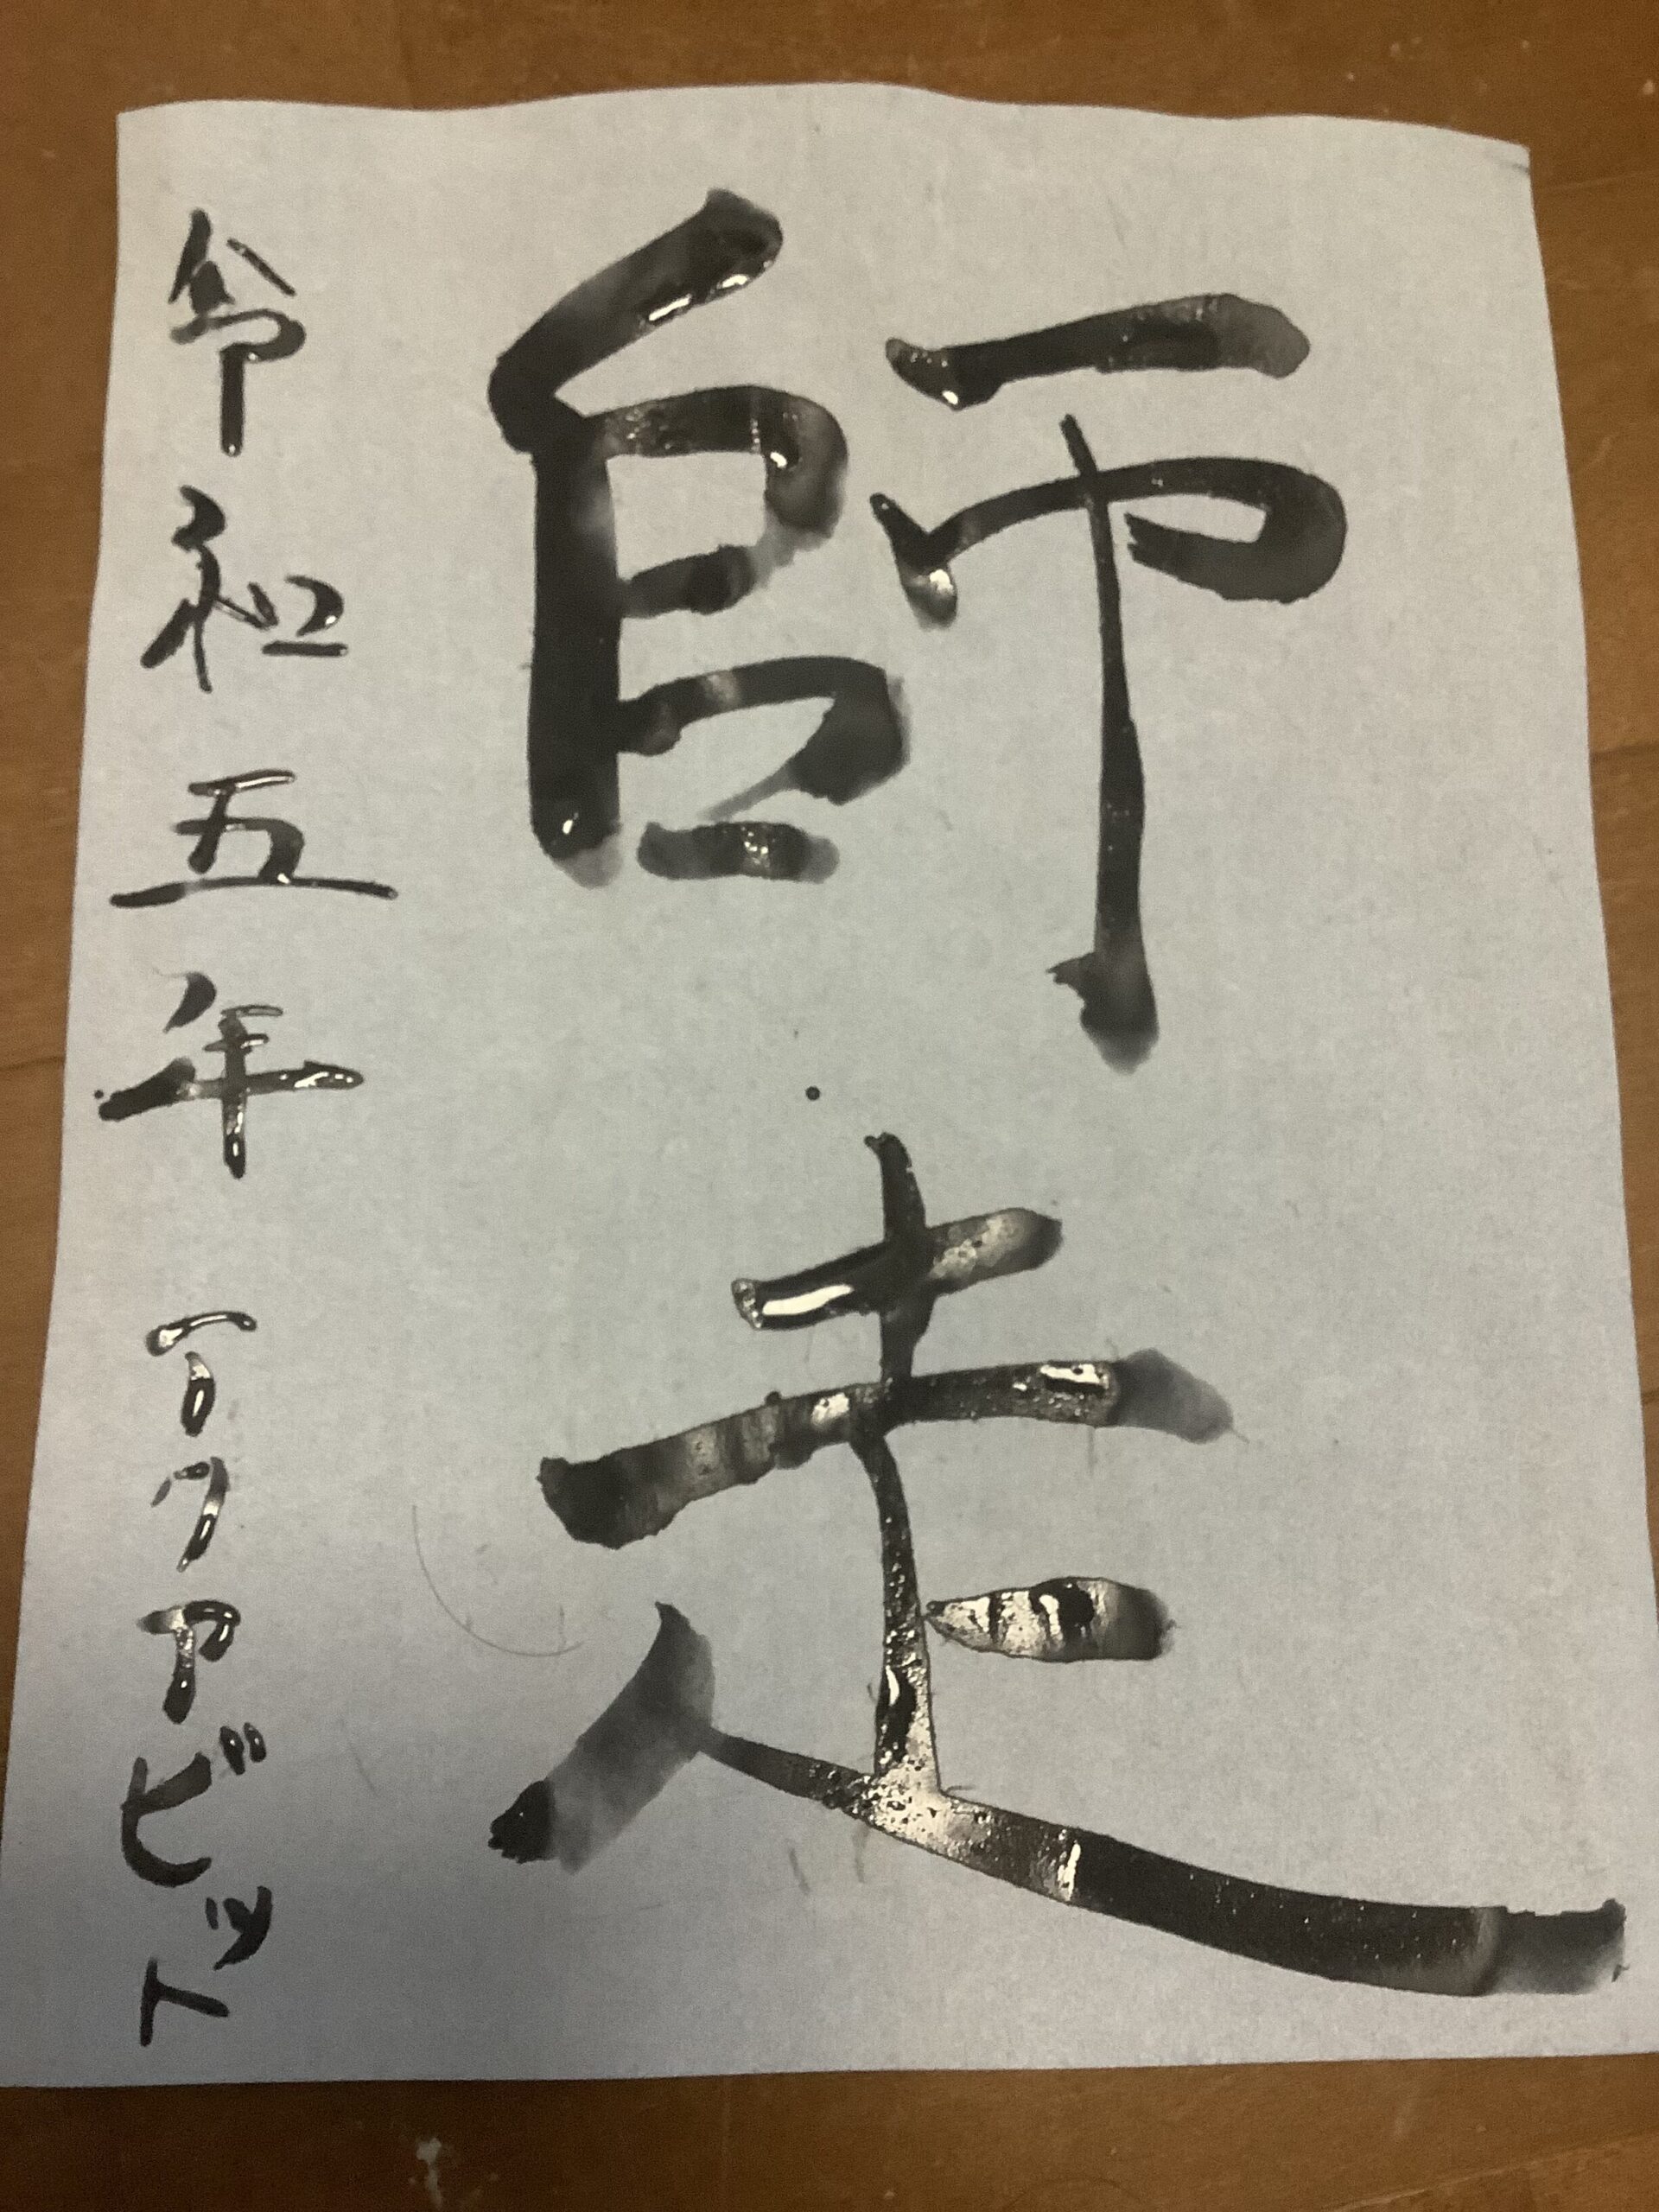 師走
令和五年 アクアビット